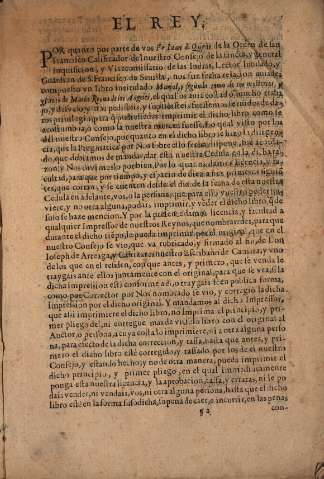 EL REY.
POR quanto por parte de vos Fr. Iuan de Quiros de la Orden de san
Francisco, Calificador del nuestro Consejo de la santa, y general
Inquisicion, y Vicecomissario de las Indias, Lector Iubilado, y
Guardian de S. Francisco de Seuilla, nos fue fecha relacion auiades
compuesto vn libro intitulado
de Maria Reyna de los Angeles, el qual os auia costado mucho traba-
jo, y desvelo, y
para que pudiessedes imprimir el dicho libro, como se
acostumbraua, ò como la nuestra merced fuesse. Lo qual visto por los
del nuestro Consejo, por quanto en el dicho libro se hizo la diligen-
cia, que la Pregmatica por Nos sobre ello fecha dispone, fue acorda-
do, que debiamos de mandar dar esta nuestra Cedula en la dicha ra-
zon, y Nos lo tuuimos por bien. Por la qual os damos licencia, y fa-
cultad, para que por tiempo, y espacio de diez años primeros siguien-
tes, que corran, y se cuenten desde el dia de la fecha de esta nuestra
Cedula en adelante, vos, ò la persona, que para ello vuestro poder tu-
uiere, y no otra alguna, podais imprimir, y vender el dicho libro, que de
suso se haze mencion. Y por la presente damos licencia, y facultad à
qualquier Impressor de nuestros Reynos, que nombraredes, para que
durante el dicho tiempo le pueda imprimir por el original, que en el
nuestro Consejo se vio, que va rubricado, y firmado al fin, de Luis
Ioseph de Arteaga, y Cañizares nuestro Escriuano de Camara, y vno
de los que en èl residen, con que antes, y primero, que se venda le
traygais ante ellos juntamente con el original, para que se vea, si la
dicha impression està conforme à èl, ò traygais fee en publica forma,
como por Corrector por Nos nombrado se vio, y corregio la dicha
Impression por el dicho original. Y mandamos al dicho Impressor,
que assi imprimiere el dicho libro, no Imprima el principio, y pri-
mer pliego de èl, ni entregue mas de vn solo libro con el original al
Auctor, ò persona, à cuya costa lo imprimiere, ni à otra alguna perso-
na, para efecto de la dicha correccion, y tassa, hasta que antes, y pri-
mero el dicho libro estè corregido, y tassado por los de el nuestro
Consejo, y estando hecho, y no de otra manera, pueda imprimir el
dicho principio, y primer pliego, en el qual inmediatamente
ponga esta nuestra licencia, y la aprobacion, tassa, y erratas, ni le po-
dais vender, ni vendais, vos, ni otra alguna persona, hasta que el dicho
libro estè en la forma susodicha, so pena de caer, è incurrir en las penas
con-